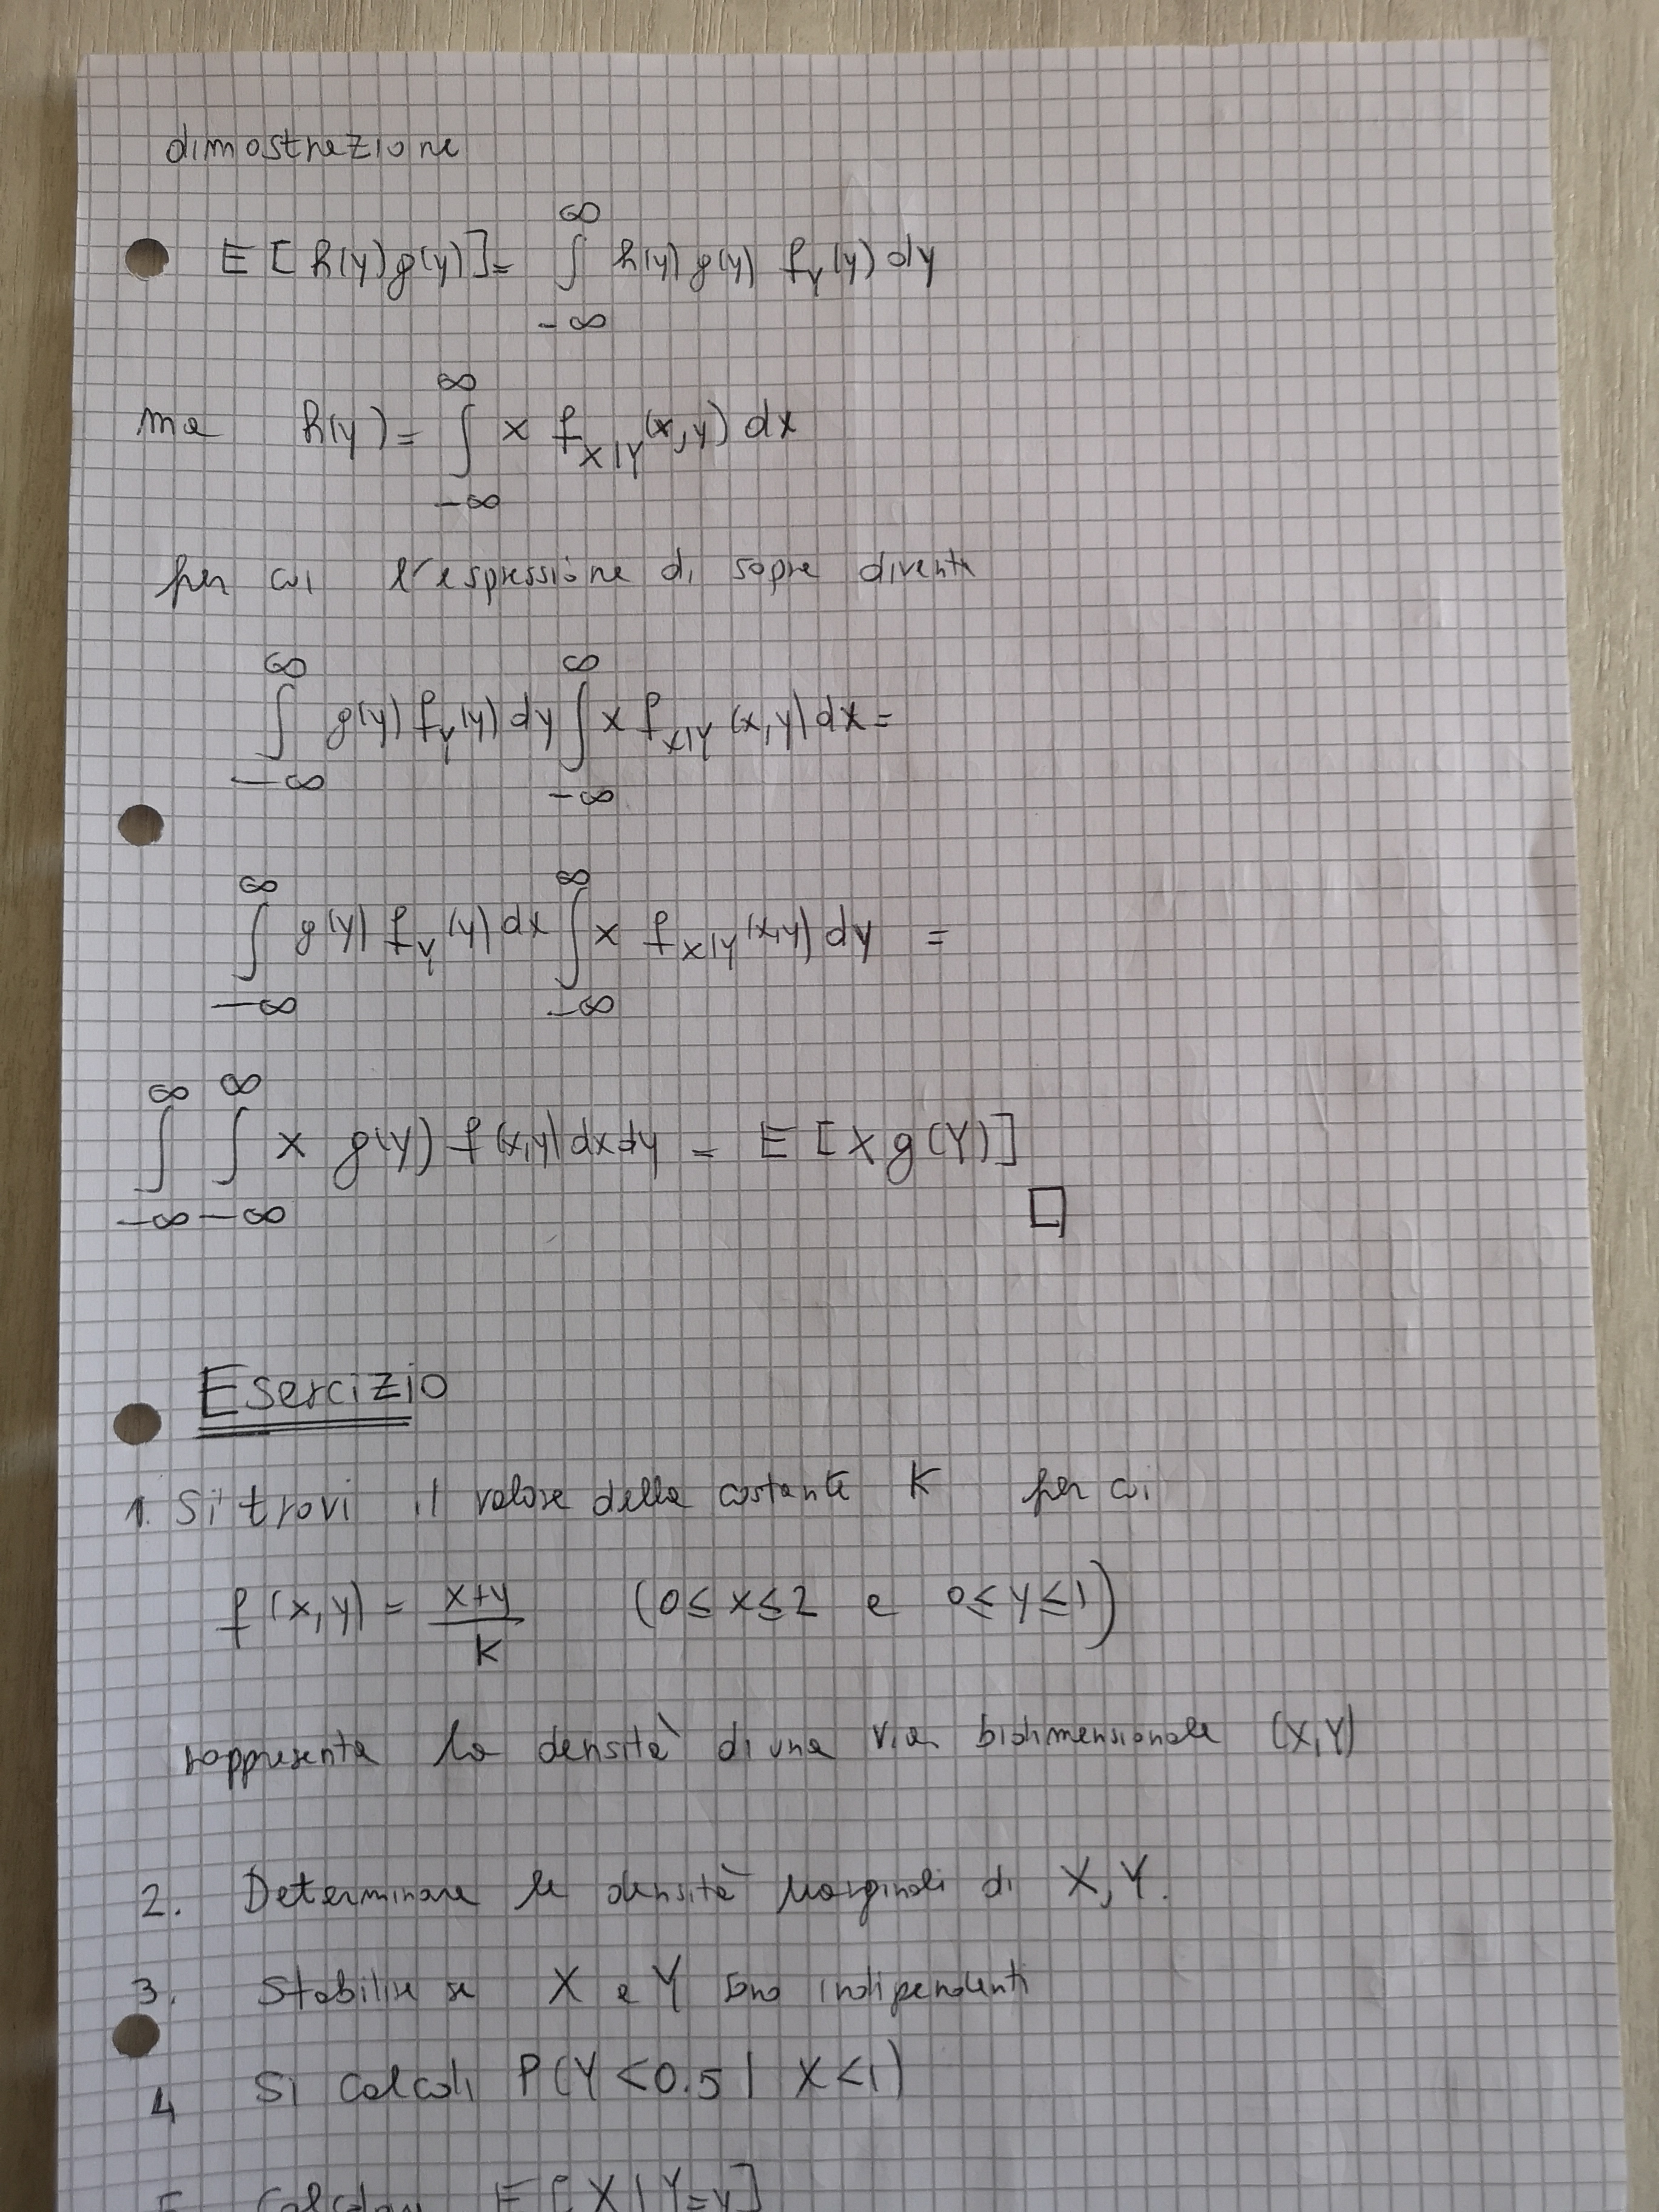 dimostrazione
E[h(y)g(y)] = ∫_{-∞}^{∞} h(y) g(y) f_Y(y) dy
ma h(y) = ∫_{-∞}^{∞} x f_{X|Y}(x,y) dx
per cui l'espressione di sopra diventa
∫_{-∞}^{∞} g(y) f_Y(y) dy ∫_{-∞}^{∞} x f_{X|Y}(x,y) dx =
∫_{-∞}^{∞} g(y) f_Y(y) dx ∫_{-∞}^{∞} x f_{X|Y}(x,y) dy =
∫_{-∞}^{∞} ∫_{-∞}^{∞} x g(y) f(x,y) dx dy = E[X g(Y)]
□
Esercizio
1. Si trovi il valore della costante K per cui
f(x,y) = \frac{x+y}{K} (0 ≤ x ≤ 2 e 0 ≤ y ≤ 1)
rappresenta la densità di una v.a. bidimensionale (X,Y)
2. Determinare le densità marginali di X, Y.
3. Stabilire se X e Y sono indipendenti
4 Si calcoli P(Y < 0.5 | X < 1)
5 Calcolare E[X | Y=y]